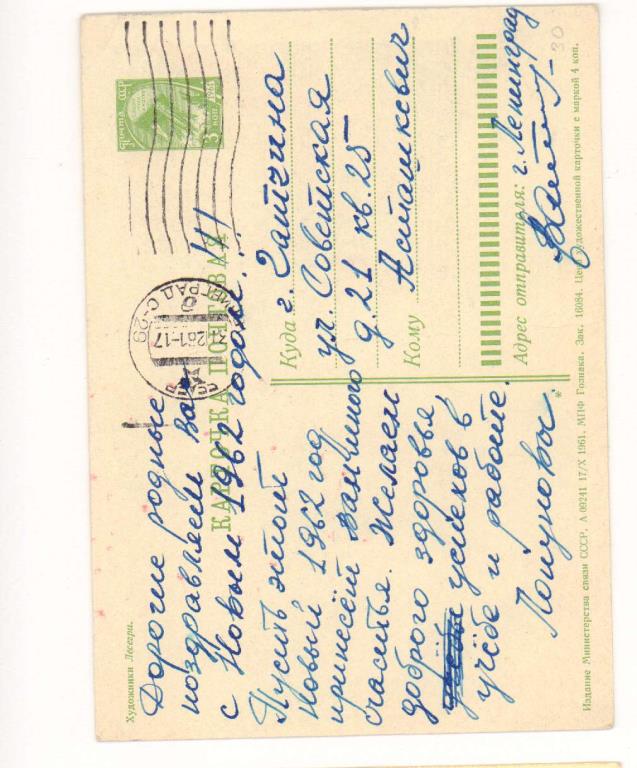 Художники Лесегри.
Почта СССР
1961
3 коп
КАРТОЧКА ПОЧТОВАЯ
Дорогие родные
поздравляем Вас
с Новым 1962 годом!!!
Пусть этот
Новый 1962 год
принесёт Вам много
счастья. Желаем
доброго здоровья,
успехов в
учёбе и работе.
Куда г. Гатчина
ул. Советская
д. 21 кв. 25
Кому Асташкевич
Адрес отправителя: г. Ленинград
30
Издание Министерства связи СССР. А 09241 17/X 1961. МПФ Гознака. Зак. 16084. Цена художественной карточки с маркой 4 коп.